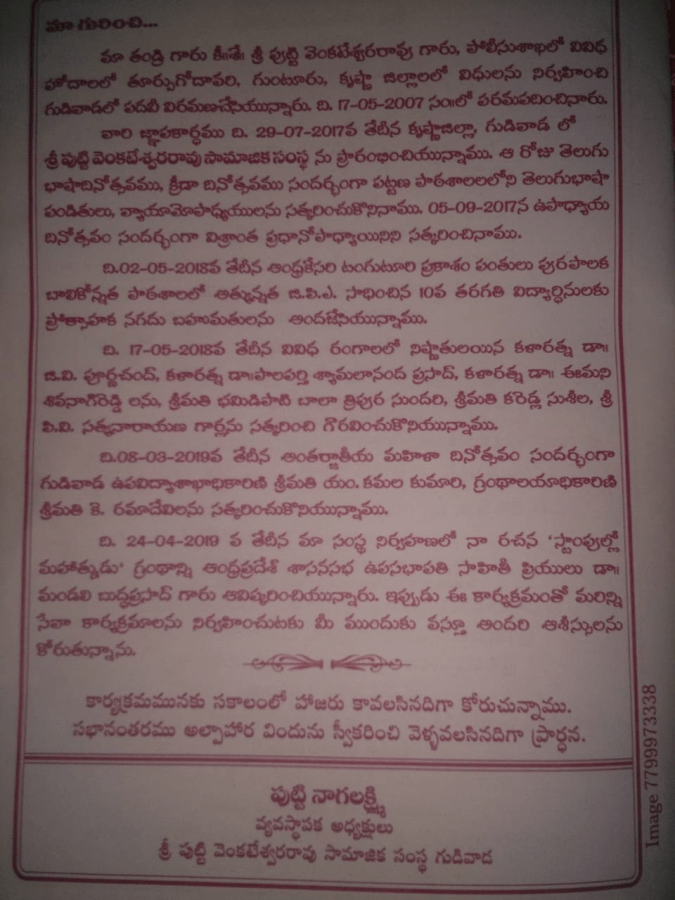 మా గురించి...
మా తండ్రి గారు కీ॥శే॥ శ్రీ పుట్టి వెంకటేశ్వరరావు గారు, పోలీసుశాఖలో వివిధ
హోదాలలో తూర్పుగోదావరి, గుంటూరు, కృష్ణా జిల్లాలలో విధులను నిర్వహించి
గుడివాడలో పదవీ విరమణచేసియున్నారు. ది. 17-05-2007 సం॥లో పరమపదించినారు.
వారి జ్ఞాపకార్థము ది. 29-07-2017వ తేదీన కృష్ణాజిల్లా, గుడివాడ లో
శ్రీ పుట్టి వెంకటేశ్వరరావు సామాజిక సంస్థ ను ప్రారంభించియున్నాము. ఆ రోజు తెలుగు
భాషాదినోత్సవము, క్రీడా దినోత్సవము సందర్భంగా పట్టణ పాఠశాలలలోని తెలుగుభాషా
పండితులు, వ్యాయామోపాధ్యయులను సత్కరించుకొనినాము. 05-09-2017న ఉపాధ్యాయ
దినోత్సవం సందర్భంగా విశ్రాంత ప్రధానోపాధ్యాయినిని సత్కరించినాము.
ది.02-05-2018వ తేదీన ఆంధ్రకేసరి టంగుటూరి ప్రకాశం పంతులు పురపాలక
బాలికోన్నత పాఠశాలలో అత్యున్నత జి.పి.ఎ. సాధించిన 10వ తరగతి విద్యార్ధినులకు
ప్రోత్సాహక నగదు బహుమతులను అందజేసియున్నాము.
ది. 17-05-2018వ తేదీన వివిధ రంగాలలో నిష్ణాతులయిన కళారత్న డా॥
జి.వి. పూర్ణచంద్, కళారత్న డా॥పాలపర్తి శ్యామలానంద ప్రసాద్, కళారత్న డా॥ ఈమని
శివనాగిరెడ్డి లను, శ్రీమతి భమిడిపాటి బాలా త్రిపుర సుందరి, శ్రీమతి కరెడ్ల సుశీల, శ్రీ
పి.వి. సత్యనారాయణ గార్లను సత్కరించి గౌరవించుకొనియున్నాము.
ది.08-03-2019వ తేదీన అంతర్జాతీయ మహిళా దినోత్సవం సందర్భంగా
గుడివాడ ఉపవిద్యాశాఖాధికారిణి శ్రీమతి యం. కమల కుమారి, గ్రంథాలయాధికారిణి
శ్రీమతి కె. రమాదేవిలను సత్కరించుకొనియున్నాము.
ది. 24-04-2019 వ తేదీన మా సంస్థ నిర్వహణలో నా రచన 'స్టాంపుల్లో
మహాత్ముడు' గ్రంథాన్ని ఆంధ్రప్రదేశ్ శాసనసభ ఉపసభాపతి సాహితీ ప్రియులు డా॥
మండలి బుద్ధప్రసాద్ గారు ఆవిష్కరించియున్నారు. ఇప్పుడు ఈ కార్యక్రమంతో మరిన్ని
సేవా కార్యక్రమాలను నిర్వహించుటకు మీ ముందుకు వస్తూ అందరి ఆశీస్సులను
కోరుతున్నాను.
కార్యక్రమమునకు సకాలంలో హాజరు కావలసినదిగా కోరుచున్నాము.
సభానంతరము అల్పాహార విందును స్వీకరించి వెళ్ళవలసినదిగా ప్రార్ధన.
పుట్టి నాగలక్ష్మి
వ్యవస్థాపక అధ్యక్షులు
శ్రీ పుట్టి వెంకటేశ్వరరావు సామాజిక సంస్థ గుడివాడ
Image 7799973338